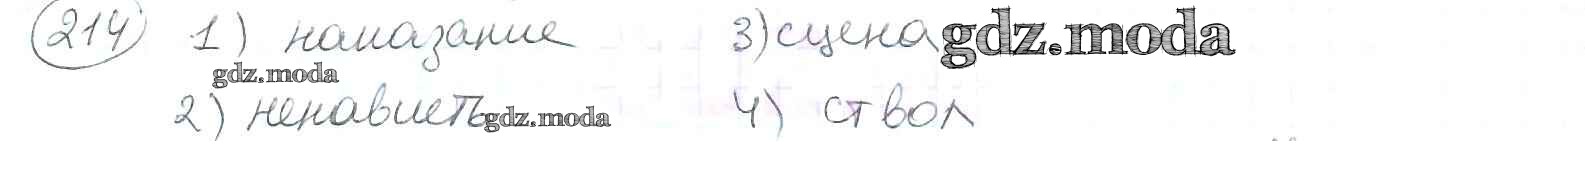 214 1) наказание 3) сцена gdz.moda
gdz.moda
2) ненависть gdz.moda 4) ствол